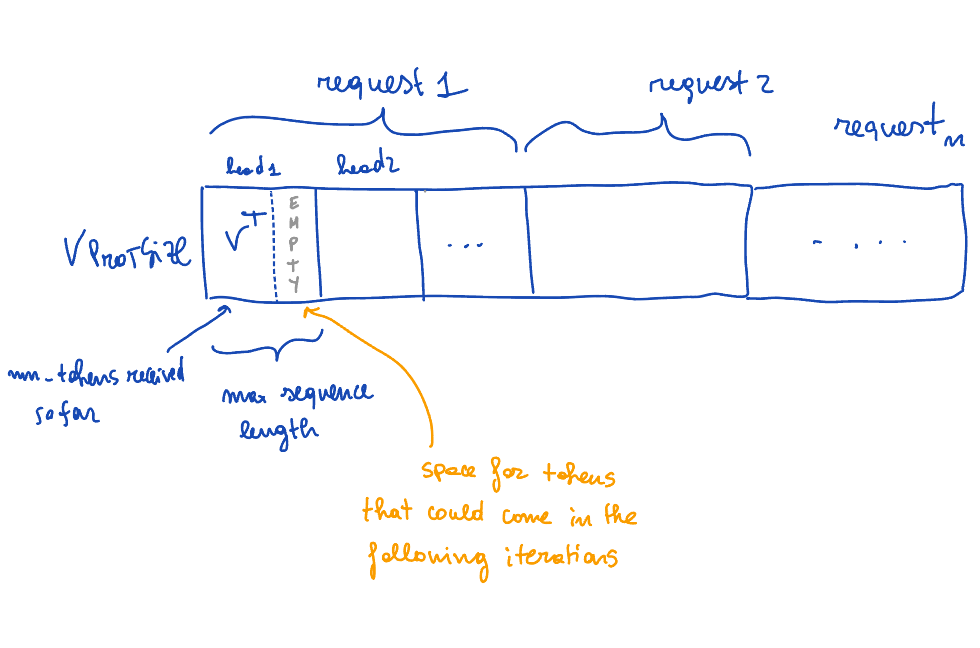 request 1
request 2
request n
head1
head2
VProjSize
V^T
EMPTY
...
- . . .
num_tokens received
so far
max sequence
length
space for tokens
that could come in the
following iterations